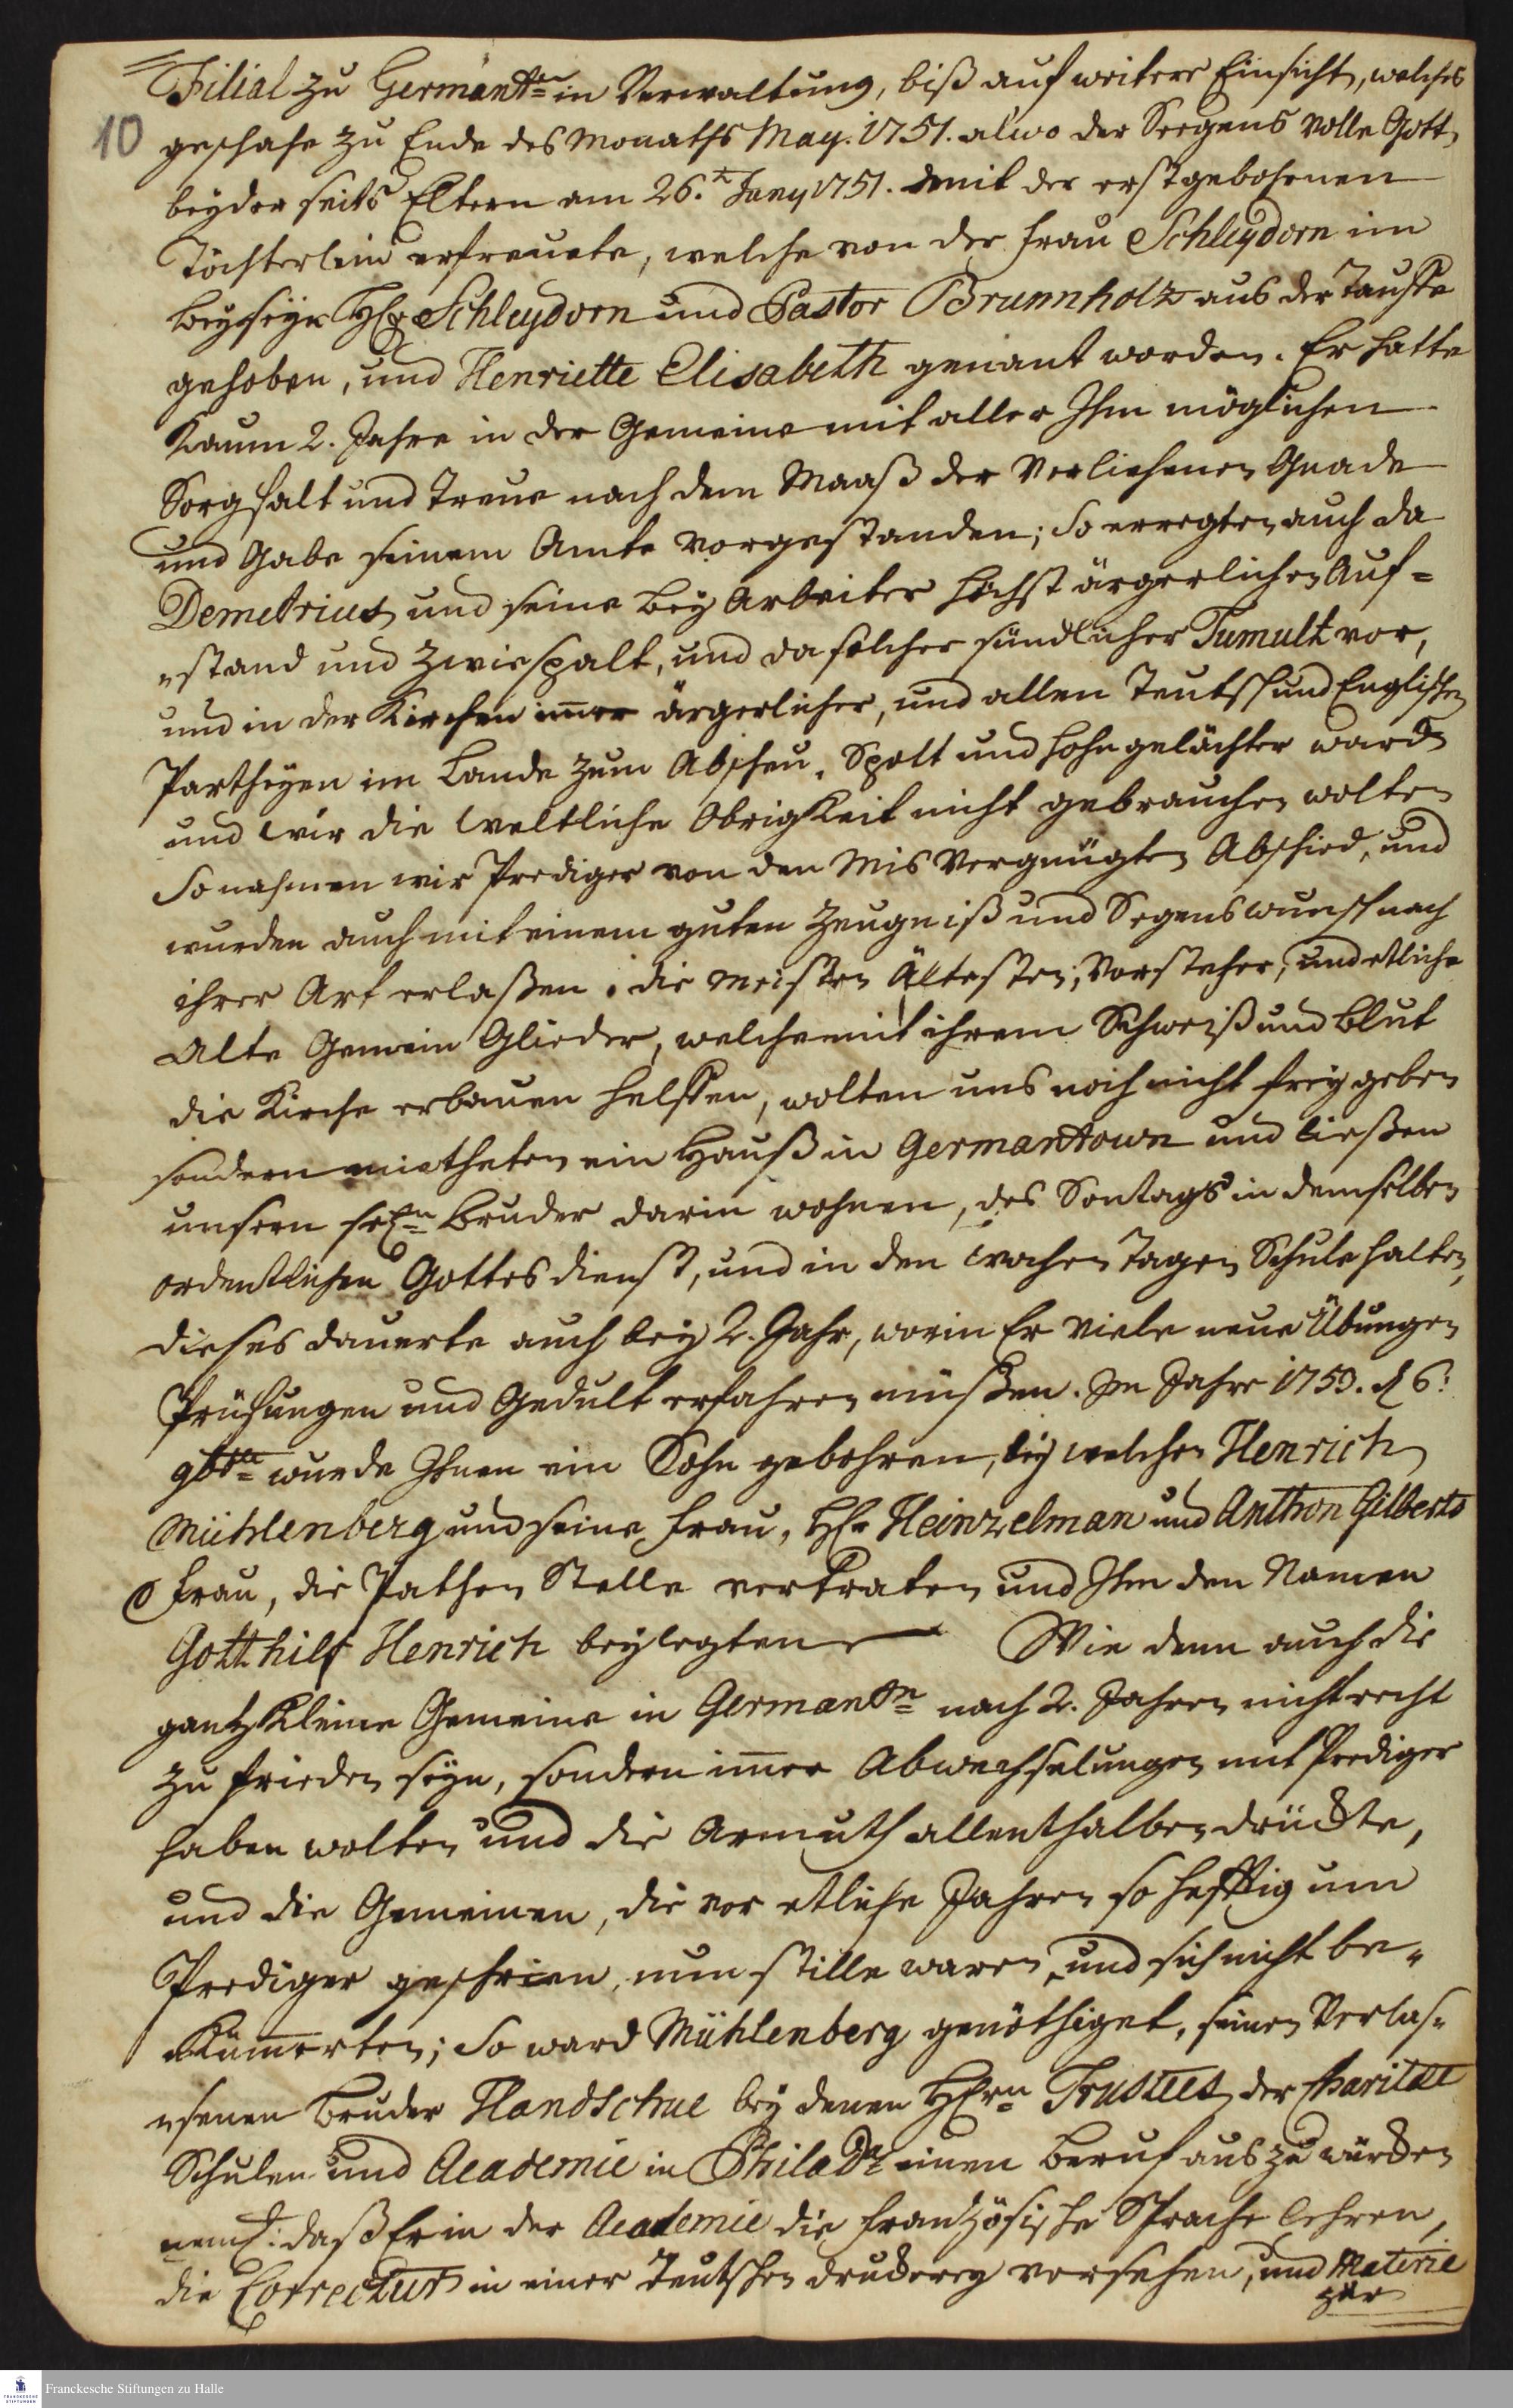 Filial zu Germant͞n in Verwaltung, biß auf weitere Einsicht, welches
10
geschahe zu Ende des Monaths May. 1751. alwo der Seegens volle Gott,
beyderseits Eltern am 26.t Juny 1751. mit der erstgebohrnen
Töchterlein erfreuete, welche von der Frau Schleydorn im
beyseyn H. Schleydorn und Pastor Brunnholz aus der Tauffe
gehoben, und Henriette Elisabeth genant worden. Er hatte
kaum 2. Jahre in der Gemeine mit aller Ihm möglichen
Sorgfalt und Treue nach dem Maaß der Verliehenen Gnade
und Gabe seinem Amte vorgestanden; So erregten auch da
Demetrius und seine Bey Arbeiter höchst ärgerlichen Auf=
"stand und Zwiespalt, und da solcher sündlicher Tumult vor,
und in der Kirchen im̅er ärgerlicher, und allen Teutsch und Englischen
Partheyen im Lande zum Abscheu, Spott und Hohngelächter ward
und wir die Weltliche Obrigkeit nicht gebrauchen wolten
So nahmen wir Prediger von den Mis Vergnügten Abschied, und
wurden auch mit einem guten Zeugniß und Segenswunsch nach
ihrer Art erlaßen. die meisten Ältesten, Vorsteher, und etliche
Alte Gemein Glieder, welche mit ihrem Schweiß und Blut
die Kirche erbauen helffen, wolten uns noch nicht frey geben
sondern mietheten ein Hauß in Germantown und ließen
unsern Bruder darin wohnen, des Sontags in demselben
ordentlichen Gottesdienst, und in den Wochen Tagen Schule halten,
dieses dauerte auch bey 2. Jahr, worin Er viele neue Übungen
Prüfungen und Gedult erfahren müßen. Im Jahre 1753. d 6:
9br wurde Ihnen ein Sohn gebohren, bey welchen Henrich
Mühlenberg und seine Frau, H. Heinzelman und Anthon Gilberts
Frau, die Pathen Stelle vertraten und Ihm den Namen
Gotthilf Henrich beylegten Wie denn auch die
gantz kleine Gemeine in Germant͞n nach 2. Jahren nicht recht
zu frieden seyn, sondern im̅er Abwechselungen mit Prediger
haben wolten und die Armuth allenthalben drückte,
und die Gemeinen, die vor etliche Jahren so hefftig um
Prediger geschrien, nun stille waren, und sich nicht be"
"küm̅erten; So ward Mühlenberg genöthiget, seinen Verlas"
"senen Bruder Handschue bey denen Hrn Trustees der Charitae
Schulen und Academie in Philada einen Beruf aus zu würcken
neml: daß Er in der Academie die französische Sprache lehren,
die Correctur in einer Teutschen druckerey versehen, und Materie
zur
Franckesche Stiftungen zu Halle